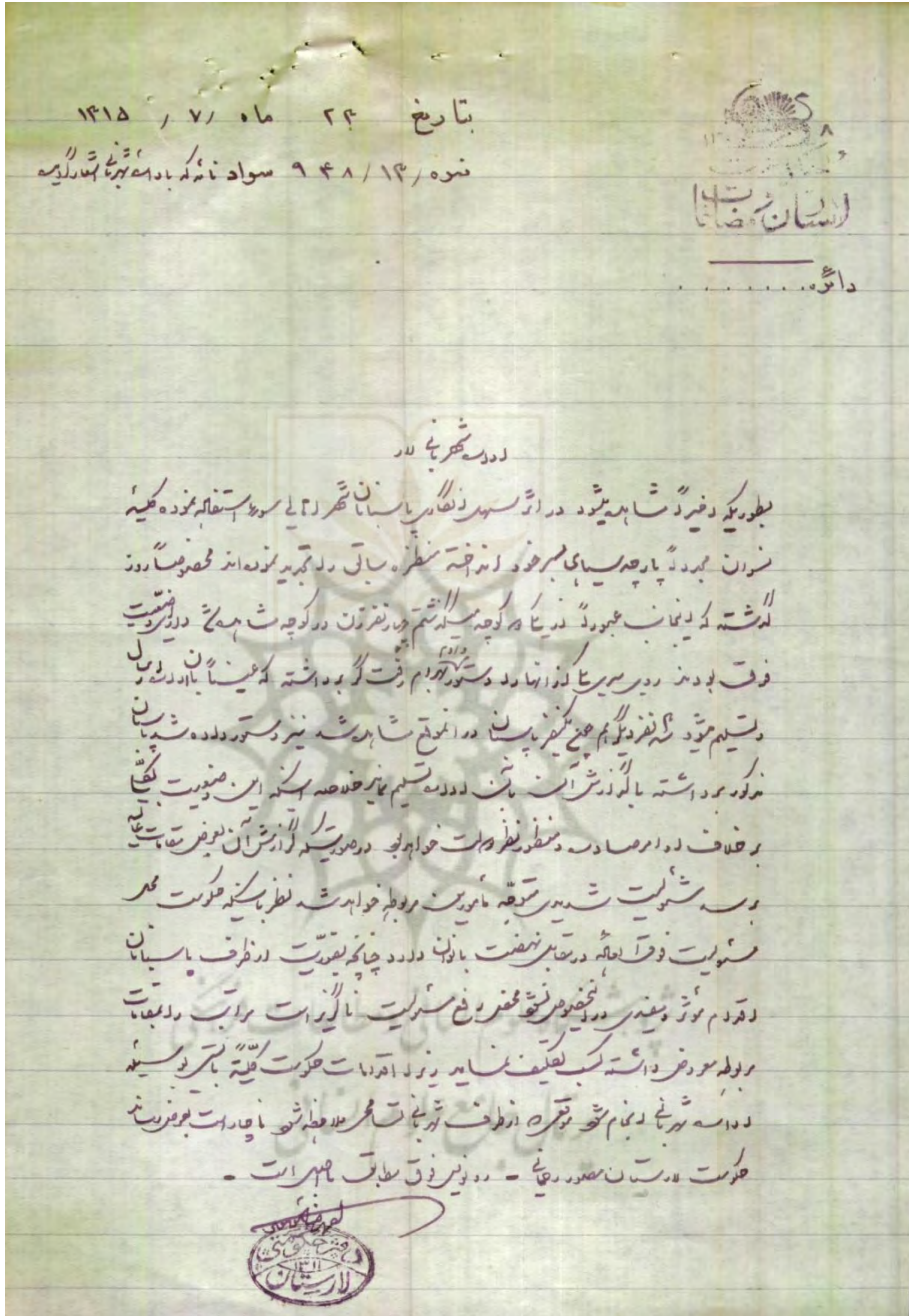 بتاریخ ۲۴ ماه ۷/ ۱۳۱۵
نمره ۱۳/ ۹۴۸ سواد نامه که باداره شهربانی اشعار گردیده
لارستان و مضافات
دائره........
اداره شهربانی لار
بطوریکه اخیراً مشاهده میشود در اثر سهل انگاری پاسبانان شهر اهالی سوء استفاده نموده کلیه
نسوان مجدداً پارچه سیاهی بسر خود انداخته منظره سابق را تجدید نموده‌اند مخصوصاً روز
گذشته که اینجانب عبوراً در یک کوچه میگذشتم چهار نفر زن در کوچه مشاهده شد دارای وضعیت
فوق بودند روسری یک از آنها را دستور دادم رفت‌گر برداشته که عیناً بآن اداره ارسال
و تسلیم میشود سه نفر دیگر هم یکنفر پاسبان در آنموقع مشاهده شد نیز دستور داده شد پاسبان
مذکور برداشته با گزارش آن بآن اداره تسلیم نماید خلاصه اینکه این وضعیت
بر خلاف اوامر صادره و منظور نظر دولت خواهد بود در صورتیکه گزارش آن بعرض مقامات عالیه
برسد مسئولیت شدیدی متوجه مأمورین مربوطه خواهد شد نظر باینکه حکومت محل
مسئولیت فوق‌العاده در مقابل نهضت بانوان دارد چنانچه بفوریت از طرف پاسبانان
اقدام مؤثر و مفیدی در اینخصوص نشود محض رفع مسئولیت ناگزیر است مراتب را بمقامات
مربوطه معروض داشته کسب تکلیف نماید زیرا اقدامات حکومت کلیةً بایستی بوسیله
اداره شهربانی انجام شود موقعی که از طرف شهربانی تسامحی ملاحظه شود ناچار است بعرض برساند
حکومت لارستان منصور ریحانی - رونویس فوق مطابق با اصل است -
دفتر حکومتی
۱۳۱۱
لارستان